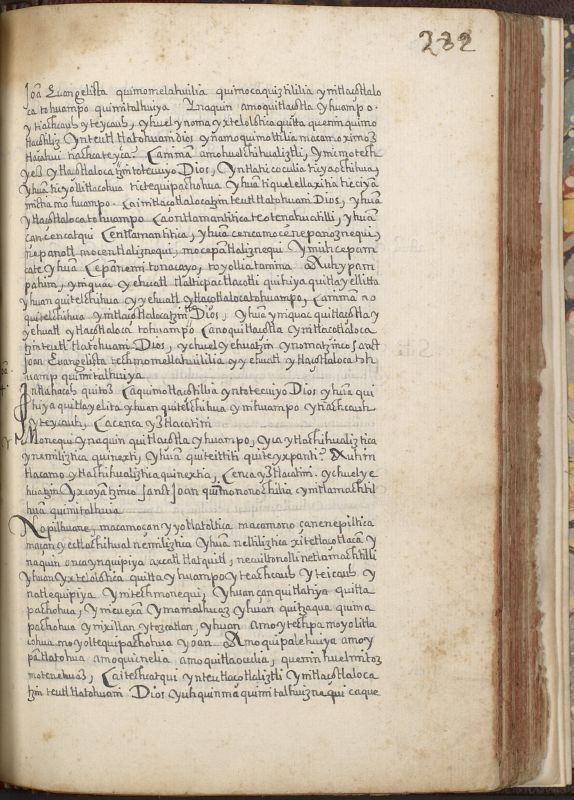 282
Joā Euangelista quimomelahuilia quimocaquiztililia yn itlaçotlalo
ca tohuampo quimitalhuiya Ynaquin amo quitlaçotla yhuampo.
ytiachcauh yteycauh, yhuel ynoma yxtelolotica quitta quenin quimo
tlaçotiliz ynteutl tlahtohuani dios yn amo quimottilia macamo ximoz
Camma amo huelchihualiztli, ynimotech
yez ytlaçotlalocatzin totecuiyo Dios, yntla ticocolia ticyaochihua,
yhuā ticyollitlacohua titequipachohua yhuā tiquelellaxitia ticciyā
micha mohuampo. Ca in itlaçotlalocatzin teutl tlahtohuani Dios, yhuā
ytlaçotlaloca tohuampo Ca ontlamantitica teotenahuatilli, yhuā
can cencatqui Centlamantitica, yhuā cencamocenepanoznequi,
nepanotl mocentlaliznequi, mocepantlaliznequi Yniuh cepam
cate yhuā Cepānemi tonacayo, toyollia tanima Auh ypam
pahin, yniquac yehuatl tlalticpac tlacotli quihiya quitlayellitta
yhuan quitelchihua yyehuatl ytlaçotlaloca tohuampo, Camman no
quitelchihua ynitlaçotlalocatzin Dios, yhuā yniquac quitlaçotla y
yehuatl ytlaçotlaloca tohuampo Ca no quitlaçotla ynitlaçotlaloca
tzin teutl tlahtohuani Dios, ychuel yehuatzin ynomatzinco Sanct
Joan Euangelista techmomellahuililia yyehuatl ytlaçotlaloca toh
uamp quimitalhuiya.
Intla hacah quitoz Ca quimotlaçotillia yntotecuiyo Dios yhuā qui
hiya quitlayelita yhuan quitelchihua ynihuampo yniachcauh
yteycauh, Ca cenca yztlacatini
Monequi ynaquin quitlaçotla yhuampo, yca ytlachihualiztica
ynemiliztica quinexti, yhuā quiteittiti quiteyxpanti? Auh in
tlacamo ytlachihualiztica quinextia, Cenca yztlacatini. ychuel ye
huatzin yxcoyātzinco Sanct Joan quimononochilia ynitlamachtil
huā quimitalhuia
Nopilhuane, macamo çan yyotlatoltica macamono çan nenepiltica
ma çan yectlachihual nemiliztica yhuā neltiliztica xitetlaçotlacā y
naquin oncaynquipiya axcatl tlatquitl, necuiltonolli netlamachtilli
yhuan yxtelolotica quitta yhuampo yteachcauh yteicauh y
natlequipiya ynitechmonequi, yhuan çan quitlatiya quitta
pachohua, ynicuexā ynimamalhuaz yhuan quitzaqua quima
pachohua ynixillan ytozcatlan, yhuan amo ytechpa moyolitla
cohua moyoltequipachohua yoan Amo quipalehuiya amo y
pātlatohua amo quicnelia amo quitlaocullia, quenin huel mitoz
motenehuaz, Ca itech catqui ynteutlaçotlaliztli ynitlaçotlaloca
tzin teutl tlahtohuani Dios yuh quinma quimitalhuiznequi ca que